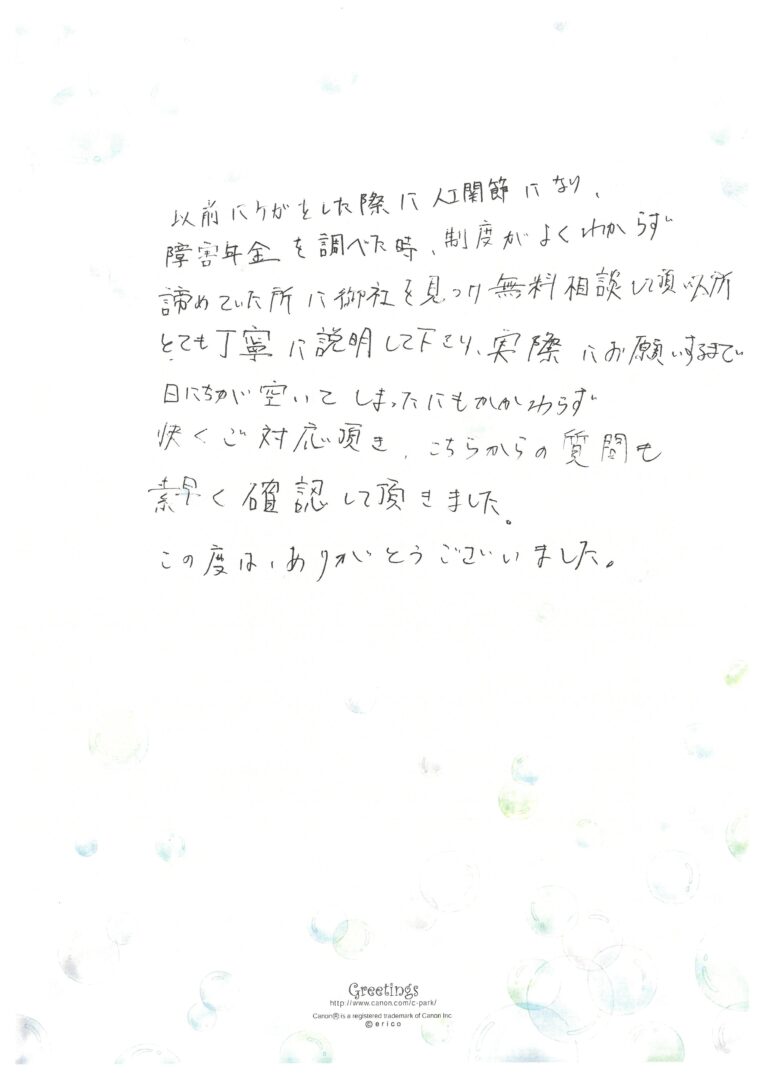 以前にケガをした際に人工関節になり、
障害年金を調べた時、制度がよくわからず
諦めていた所に御社を見つけ無料相談して頂いた所
とても丁寧に説明して下さり、実際にお願いするまで
日にちが空いてしまったにもかかわらず
快くご対応頂き、こちらからの質問も
素早く確認して頂きました。
この度は、ありがとうございました。
Greetings
http://www.canon.com/c-park/
Canon® is a registered trademark of Canon Inc
© erico